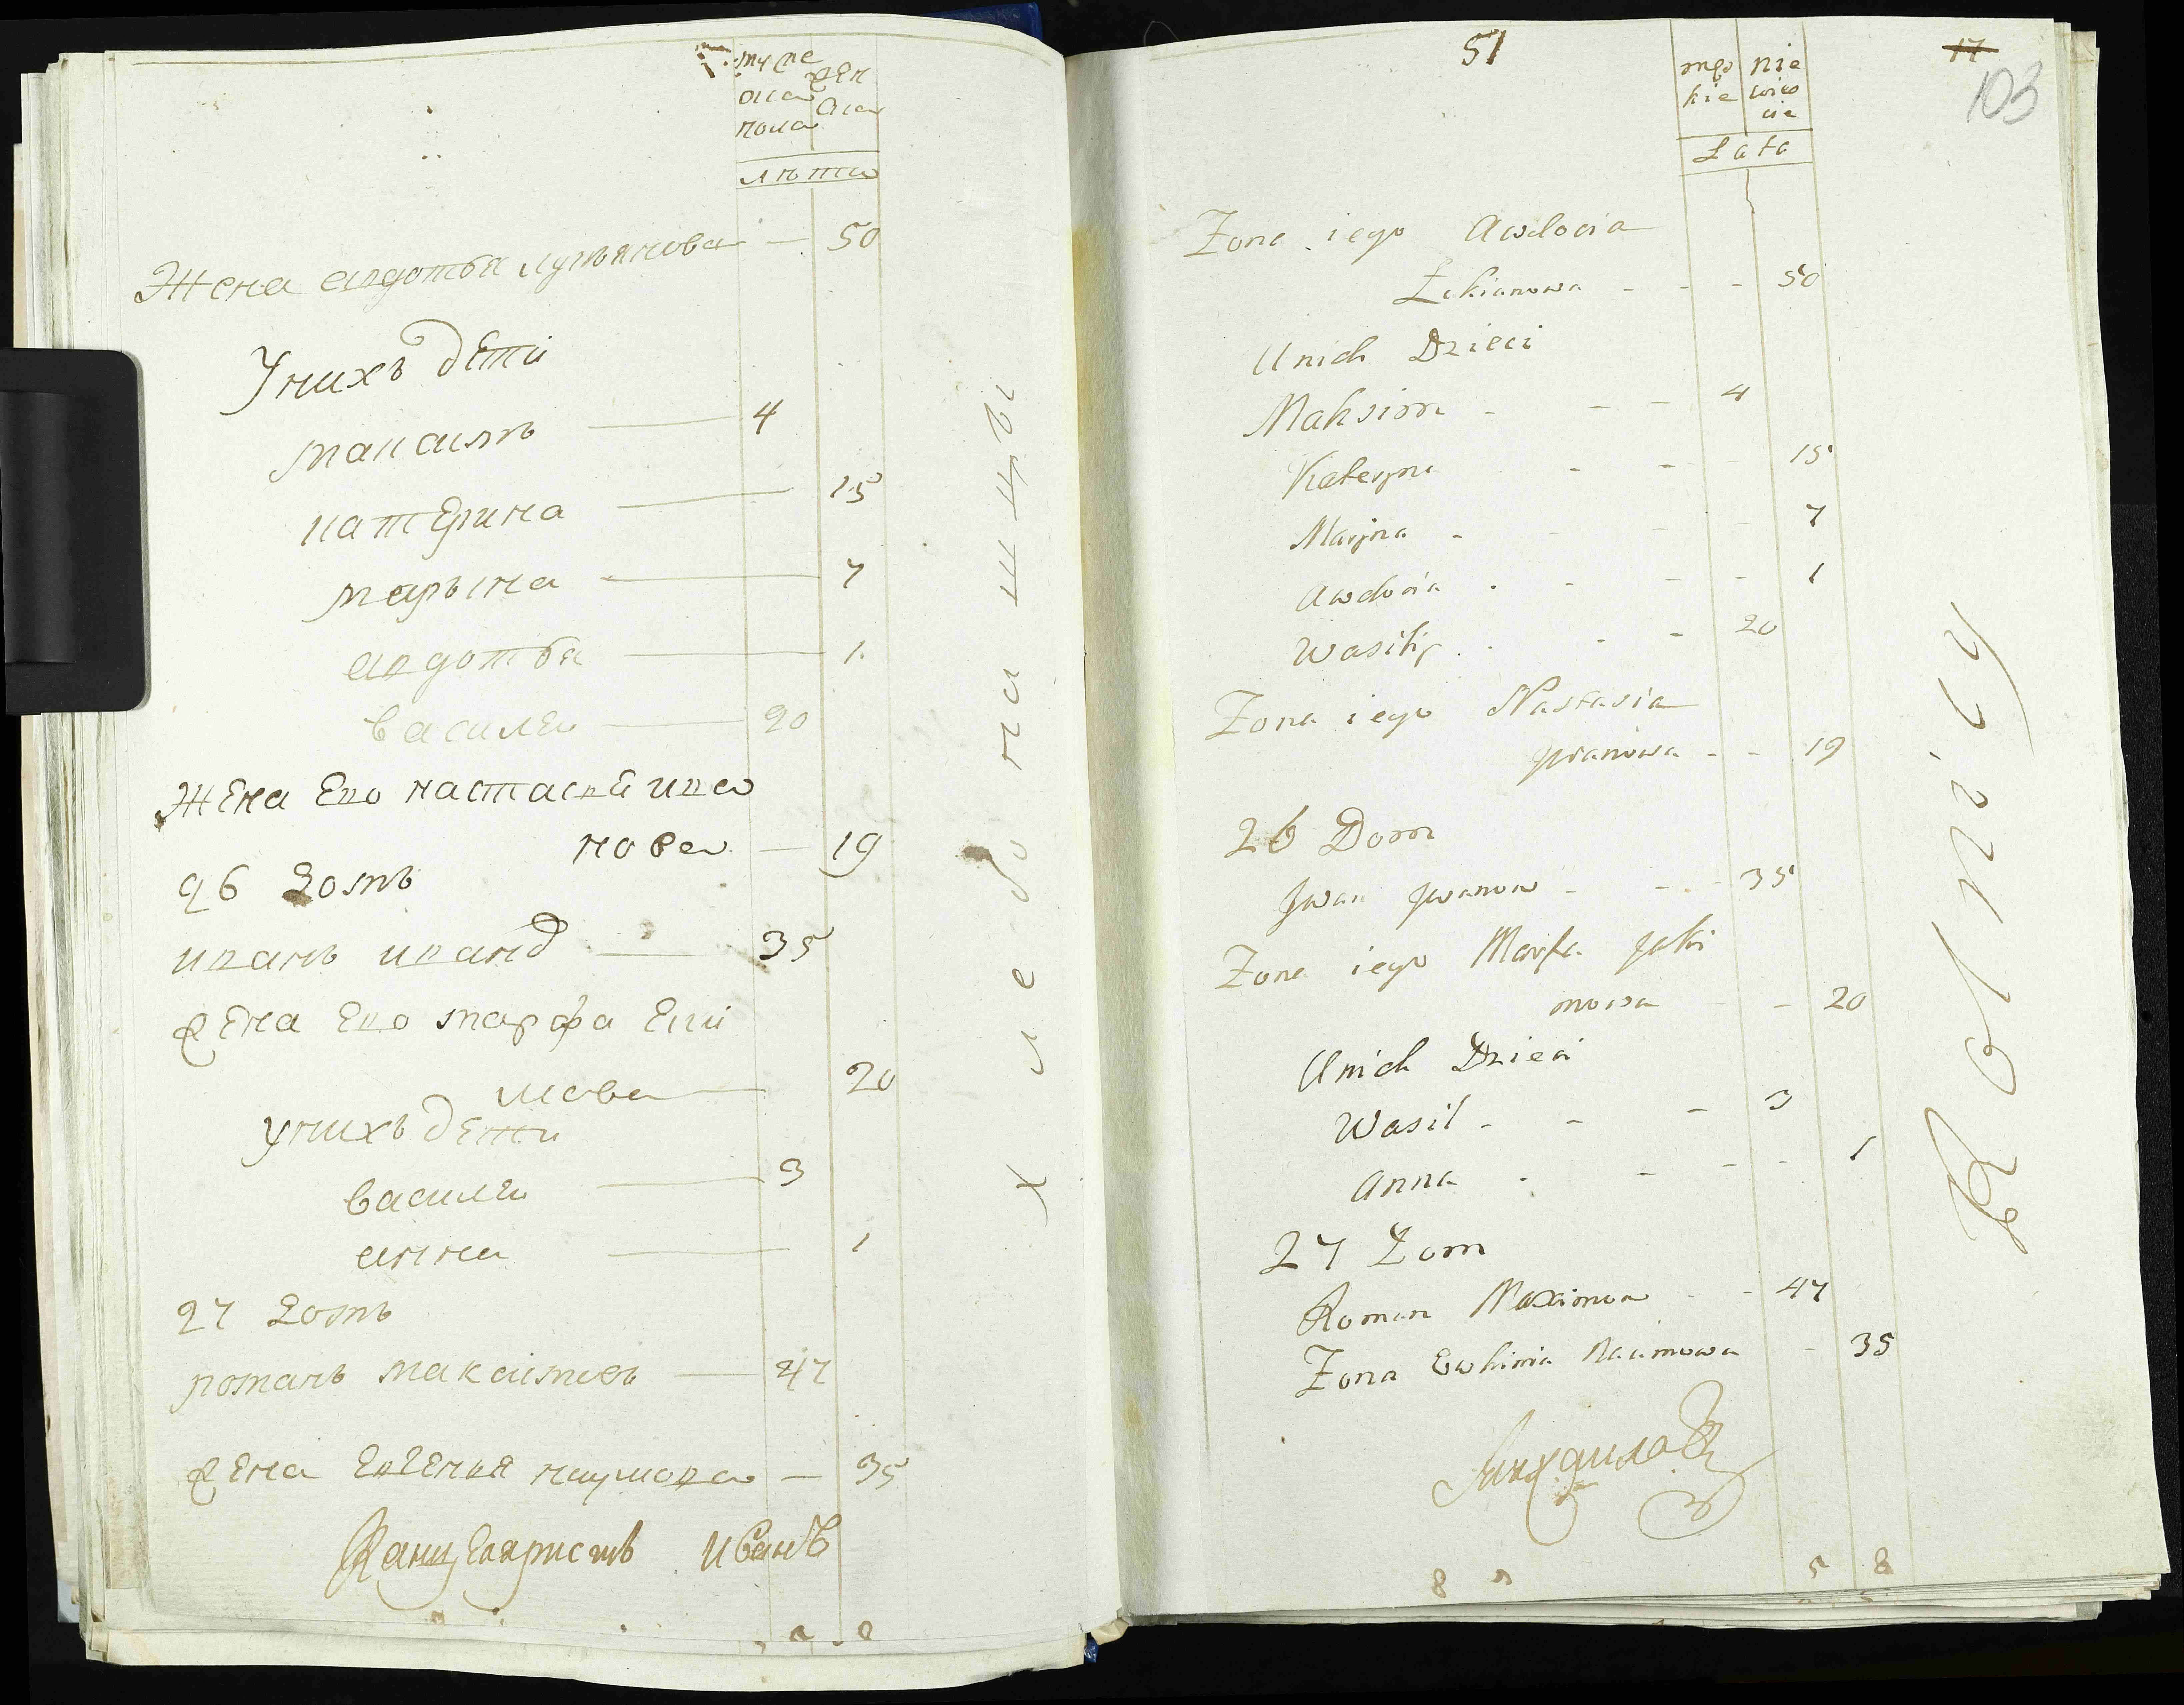 муже
ска
пола
жен
ска
лѣта
Жена авдотья лукьянова — 50
У нихъ дети
максимъ — 4
катерина — 15
марына — 7
авдотья — 1
василеи — 20
Жена Его настасья ива
нова — 19
26 домъ
иванъ иванов — 35
жена Его марфа Еки
мова — 20
у нихъ дети
василеи — 3
анна — 1
27 домъ
романъ максимовъ — 47
жена Евгения наумова — 35
Канцеляристъ Иванъ
хлебопашцы
51
17
103
męs
kie
nie
wies
cie
Lata
Zona iego Awdocia
Łukianowa - - - 50
U nich Dzieci
Maksim - - - 4
Kateryna - - 15
Maryna - - - 7
Awdocia - - - - 1
Wasiliy - - - 20
Zona iego Nastasia
Jwanowa - - 19
26 Dom
Jwan Jwanow - - - 35
Zona iego Marfa Jaki
mowa - - 20
U nich Dzieci
Wasil - - - 3
Anna - - - - 1
27 Dom
Roman Maximow - - 47
Zona Ewhinia Naumowa - 35
Rolnicy